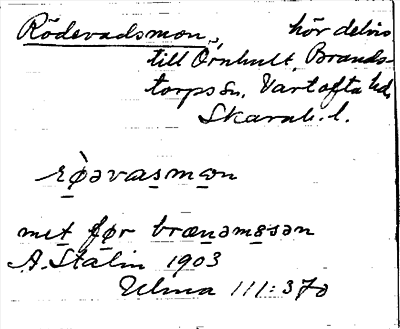 Rödevadsmon, hör delvis
till Örnhult, Brands-
torps sn, Vartofta hd,
Skarab. l.
rø̀əvasmən
met før brænəmsən
A. Stalin 1903
Ulma 111:370